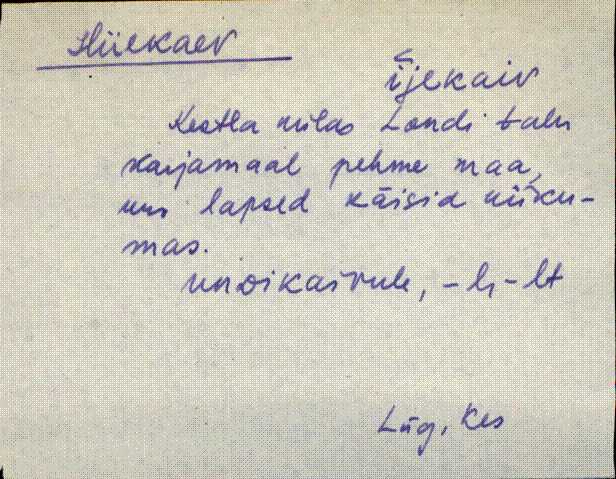 Hiiekaev
ījekaiv
Kestla külas Londi talu
karjamaal pehme maa,
kus lapsed käisid kiiku-
mas.
-kaivule, -l, -lt
Lüg, Kes